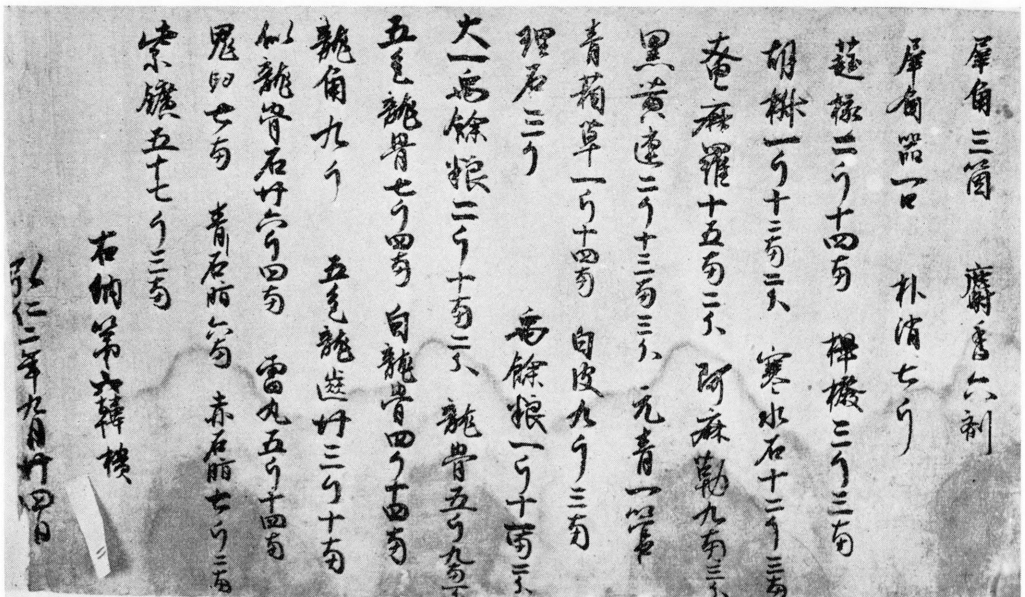 犀角三箇 麝香六剤
犀角器一口 朴消七斤
蕤核二斤十四両 檳榔三斤三両
胡椒一斤十二両二分 寒水石十二斤三両
菴麻羅十五両二分 阿麻勒九両三分
黒黄連二斤十三両三分 元青一管
青葙草一斤十四両 白皮九斤三両
理石三斤 禹餘粮一斤十一両二分
大一禹餘粮二斤十両二分 龍骨五斤九両
五色龍骨七斤四両 白龍骨四斤十四両
龍角九斤 五色龍歯廿三斤十両
似龍骨石廿六斤四両 雷丸五斤十四両
鬼臼七両 青石脂六両 赤石脂七斤三両
紫鑛五十七斤三両
右納第六韓樻
弘仁二年九月廿四日